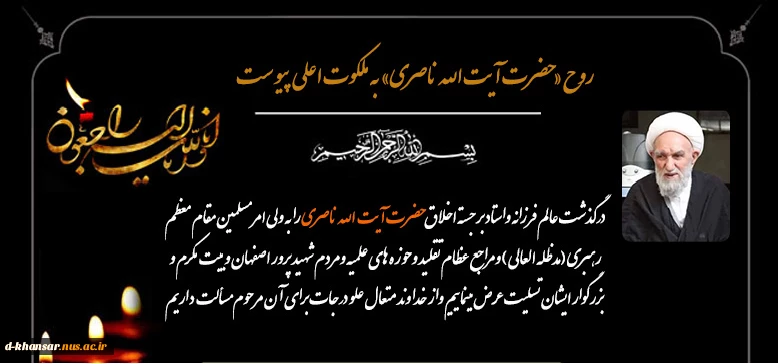 روح «حضرت آیت الله ناصری» به ملکوت اعلی پیوست
انا لله و انا الیه راجعون
بسم الله الرحمن الرحیم
درگذشت عالم فرزانه و استاد برجسته اخلاق حضرت آیت الله ناصری را به ولی امر مسلمین مقام معظم
رهبری (مدظله العالی) و مراجع عظام تقلید و حوزه های علمیه و مردم شهید پرور اصفهان و بیت مکرم و
بزرگوار ایشان تسلیت عرض مینماییم و از خداوند متعال علو درجات برای آن مرحوم مسألت داریم
d-khansar.nus.ac.ir